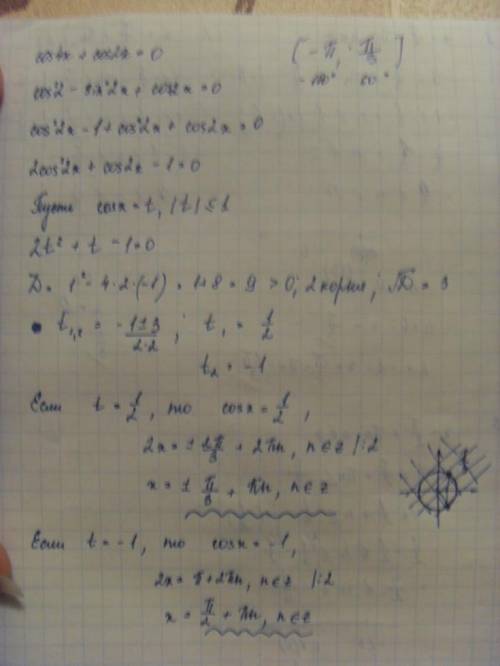 cos4x + cos2x = 0 [-π; π/3]
-180° 60°
cos²2 - sin²2x + cos2x = 0
cos²2x - 1 + cos²2x + cos2x = 0
2cos²2x + cos2x - 1 = 0
Пусть cosx = t, |t| ≤ 1
2t² + t - 1 = 0
D = 1² - 4·2·(-1) = 1+8 = 9 > 0; 2 корня; √D = 3
t₁,₂ = -1±3/2·2; t₁ = 1/2
t₂ = -1
Если t = 1/2, то cosx = 1/2,
2x = ± π/3 + 2πn, n∈z |:2
x = ± π/6 + πn, n∈z
Если t = -1, то cosx = -1,
2x = π + 2πn, n∈z |:2
x = π/2 + πn, n∈z